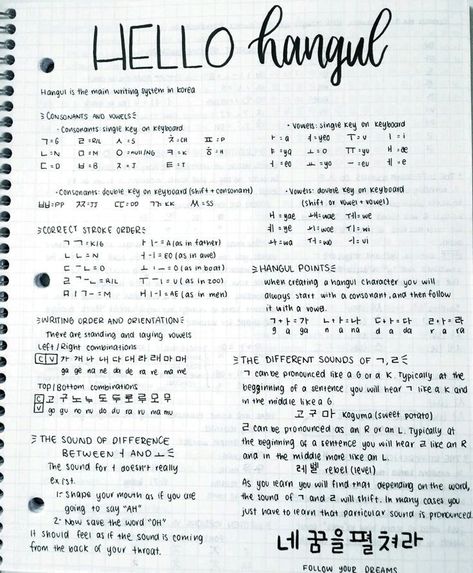 HELLO hangul
Hangul is the main writing system in korea
CONSONANTS AND VOWELS
- Consonants: single key on keyboard
ㄱ=G ㄹ=R/L ㅅ=S ㅊ=CH ㅍ=P
ㄴ=N ㅁ=M ㅇ=null/NG ㅋ=K ㅎ=H
ㄷ=D ㅂ=B ㅈ=J ㅌ=T
- Vowels: single key on keyboard
ㅏ=a ㅕ=yeo ㅜ=u ㅣ=i
ㅑ=ya ㅗ=o ㅠ=yu ㅐ=ae
ㅓ=eo ㅛ=yo ㅡ=eu ㅔ=e
- Consonants: double key on keyboard (shift + consonant)
ㅃ=PP ㅉ=JJ ㄸ=DD ㄲ=KK ㅆ=SS
- Vowels: double key on keyboard
(shift or vowel + vowel)
ㅒ=yae ㅙ=wae ㅞ=we
ㅖ=ye ㅚ=woe ㅟ=wi
ㅘ=wa ㅝ=wo ㅢ=vi
CORRECT STROKE ORDER
ㄱㄱ=K/G ㅏㅣ-=A (as in father)
ㄴㄴ=N ㅓㅣ-=EO (as in awe)
ㄷ-ㄴ=D ㅗㅣ-=O (as in boat)
ㄹㄱ-ㄴ=R/L ㅜ-ㅣ=U (as in zoo)
ㅁㅣㄱ-=M ㅐㅣ-ㅣ=AE (as in men)
HANGUL POINTS
when creating a hangul character you will
always start with a consonant, and then follow
it with a vowel.
ㄱ+ㅏ=가 ㄴ+ㅏ=나 ㄷ+ㅏ=다 ㄹ+ㅏ=라
g a ga n a na d a da r a ra
WRITING ORDER AND ORIENTATION
There are standing and laying vowels
Left/Right combinations
C V 가 개 나 내 다 대 라 래 마 매
ga gae na nae da dae ra rae ma mae
Top/Bottom combinations
C V 고 구 노 누 도 두 로 루 모 무
go gu no nu do du ro ru mo mu
THE DIFFERENT SOUNDS OF ㄱ,ㄹ
ㄱ can be pronounced like a G or a K. Typically at the
beggining of a sentence you will hear ㄱ like a K and
in the middle like a G.
고구마 Koguma (sweet potato)
ㄹ can be pronounced as an R or an L. Typically at
the beginning of a sentence you will hear ㄹ like an R
and in the middle more like an L.
레벨 rebel (level)
As you learn you will find that depending on the word,
the sound of ㄱ and ㄹ will shift. In many cases you
just have to learn that particular sound is pronounced.
THE SOUND OF DIFFERENCE
BETWEEN ㅓ AND ㅗ
The sound for ㅓ doesn't really
exist.
1- Shape your mouth as if you are
going to say "AH"
2- Now save the word "OH"
It should feel as if the sound is coming
from the back of your throat.
네 꿈을 펼쳐라
FOLLOW YOUR DREAMS